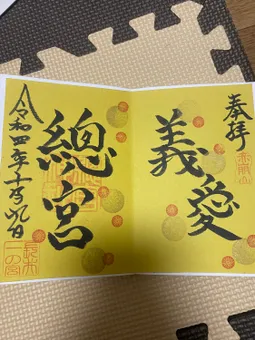 奉拝
義愛
總宮
令和四年十一月九日
長井
一の宮